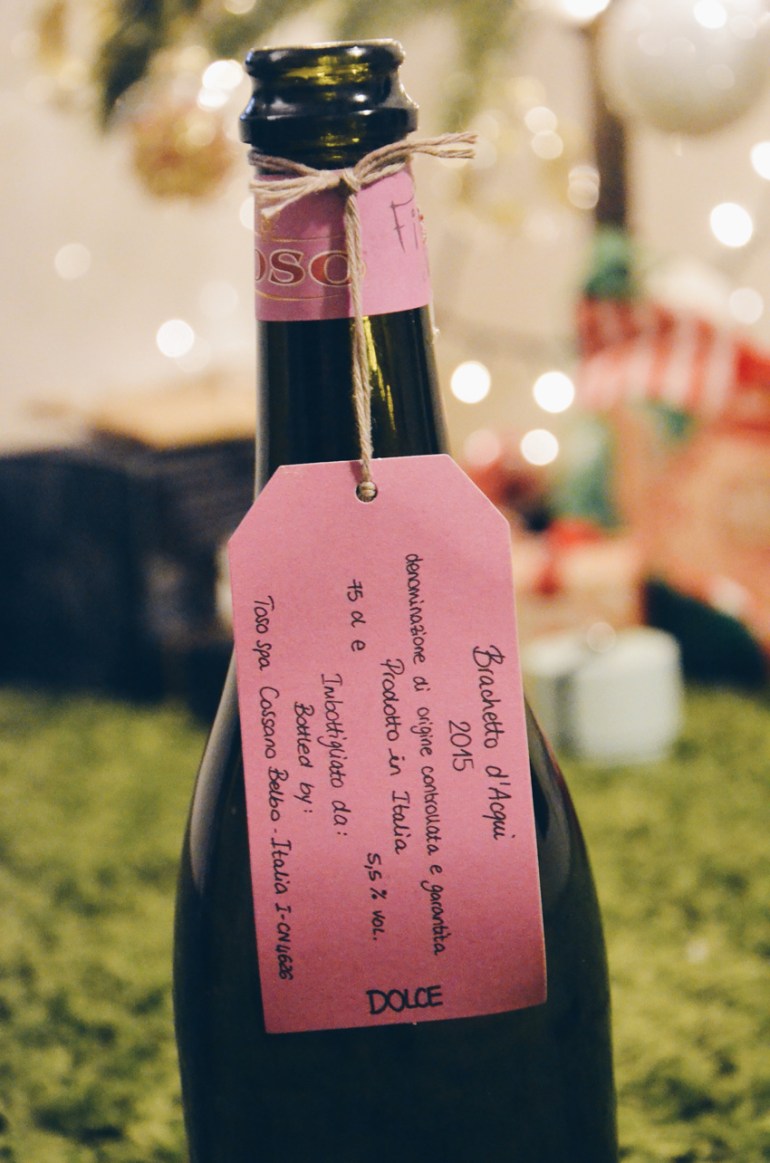 OSO
Fi
Brachetto d'Acqui
2015
denominazione di origine controllata e garantita
Prodotto in Italia
75 cl e 5,5% vol.
Imbottigliato da:
Bottled by:
Toso spa Cossano Belbo - Italia I-CN4626
DOLCE